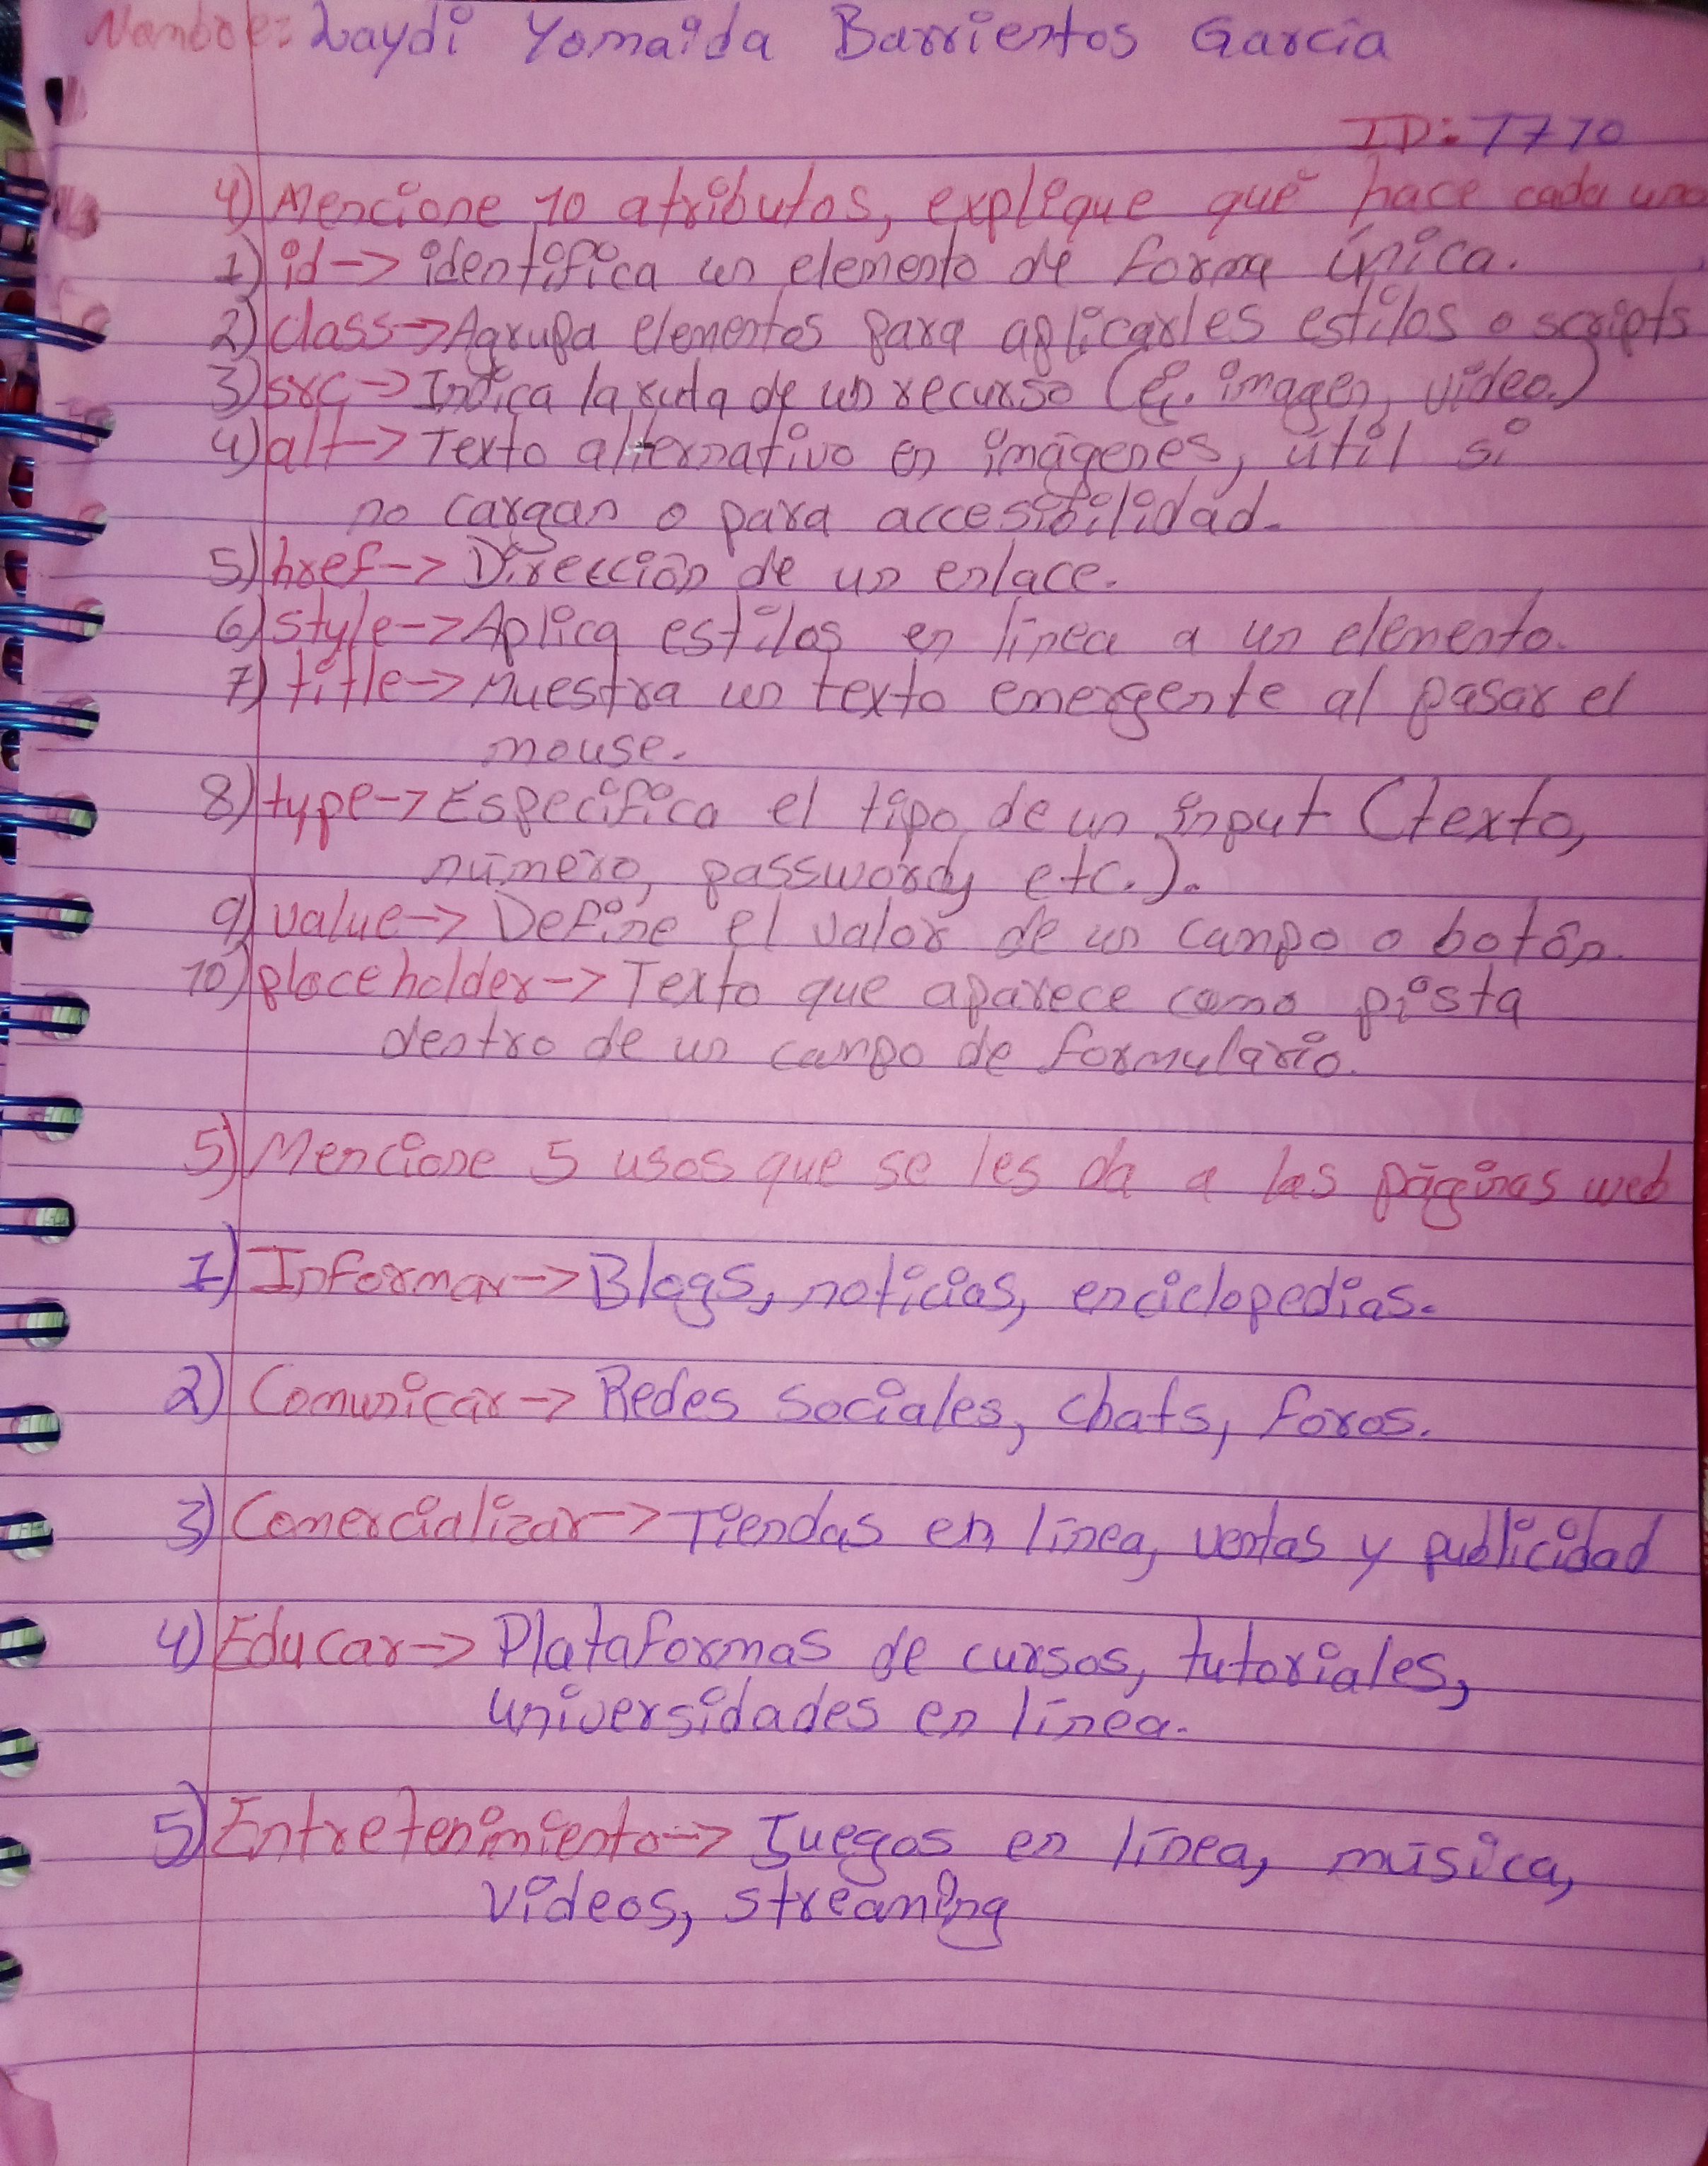 Nombre: Laydi Yomaida Barrientos García
ID: 7770
4) Mencione 10 atributos, explique qué hace cada uno
1) id -> identifica un elemento de forma única.
2) class -> Agrupa elementos para aplicarles estilos o scripts
3) src -> Indica la ruta de un recurso (Ej. imagen, video.)
4) alt -> Texto alternativo en imágenes, útil si
no cargan o para accesibilidad.
5) href -> Dirección de un enlace.
6) style -> Aplica estilos en línea a un elemento.
7) title -> Muestra un texto emergente al pasar el
mouse.
8) type -> Especifica el tipo de un input (texto,
número, password, etc.).
9) value -> Define el valor de un campo o botón.
10) placeholder -> Texto que aparece como pista
dentro de un campo de formulario.
5) Mencione 5 usos que se les da a las páginas web
1) Informar -> Blogs, noticias, enciclopedias.
2) Comunicar -> Redes sociales, chats, foros.
3) Comercializar -> Tiendas en línea, ventas y publicidad
4) Educar -> Plataformas de cursos, tutoriales,
universidades en línea.
5) Entretenimiento -> Juegos en línea, música,
videos, streaming